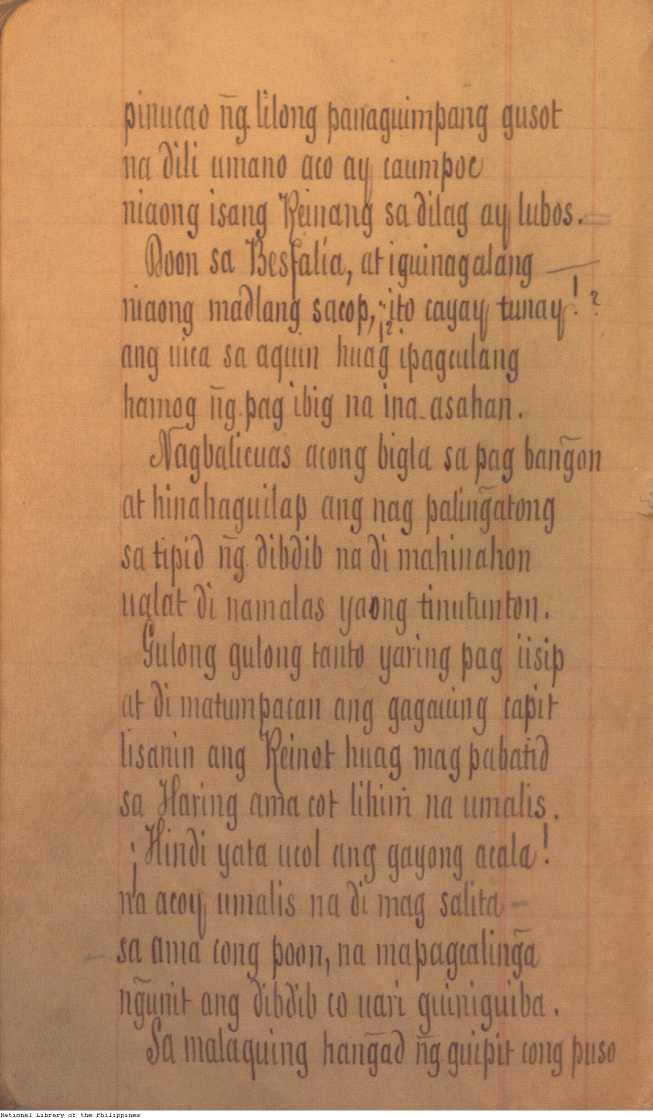 pinucao n̄g lilong panaguimpang gusot
na dili umano aco ay caumpoc
niaong isang Reinang sa dilag ay lubos.
Doon sa Besfalia, at iguinagalang
niaong madlang sacop, ¿¡ito cayay tunay!?
ang uica sa aquin huag ipagculang
hamog n̄g pag ibig na ina-asahan.
Nagbalicuas acong bigla sa pag bang̃on
at hinahaguilap ang nag paling̃atong
sa tipid n̄g dibdib na di mahinahon
ualat di namalas yaong tinutunton.
Gulong gulong tanto yaring pag iisip
at di matumpacan ang gagauing capit
lisanin ang Reinot huag mag pabatid
sa Haring ama cot lihim na umalis.
¡Hindi yata ucol ang gayong acala!
na acoy umalis na di mag salita
sa ama cong poon, na mapagcaling̃a
ng̃unit ang dibdib co uari guiniguiba.
Sa malaquing hang̃ad n̄g guipit cong puso
National Library of the Philippines